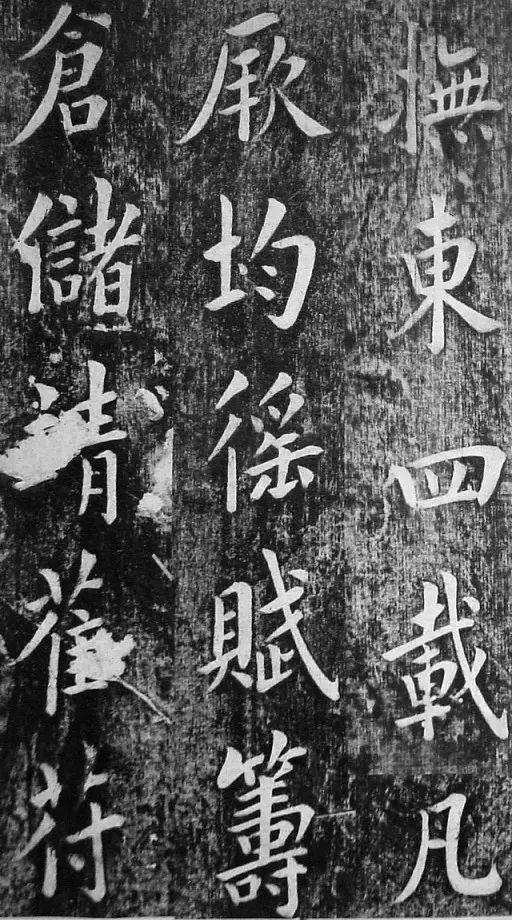 撫東四載凡
厥均徭賦籌
倉儲靖萑苻